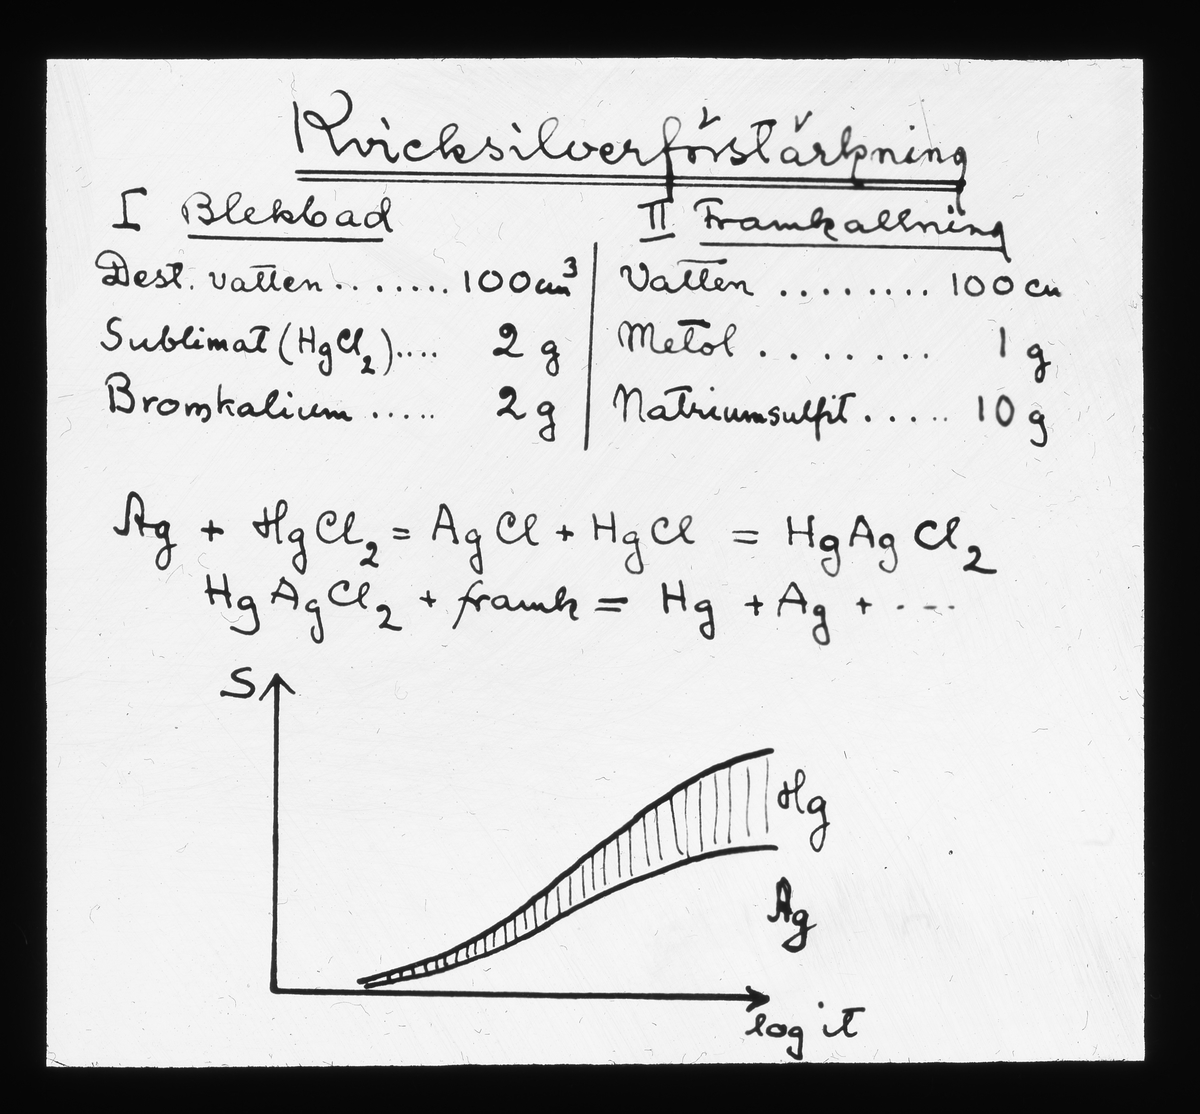 Kvicksilverförstärkning
I Blekbad
Dest. vatten ....... 100 cm³
Sublimat (HgCl₂).... 2 g
Bromkalium ..... 2 g
II Framkallning
Vatten ........ 100 cm
Metol ........ 1 g
Natriumsulfit ..... 10 g
Ag + HgCl₂ = AgCl + HgCl = HgAgCl₂
HgAgCl₂ + framk = Hg + Ag + ....
S
Hg
Ag
log it